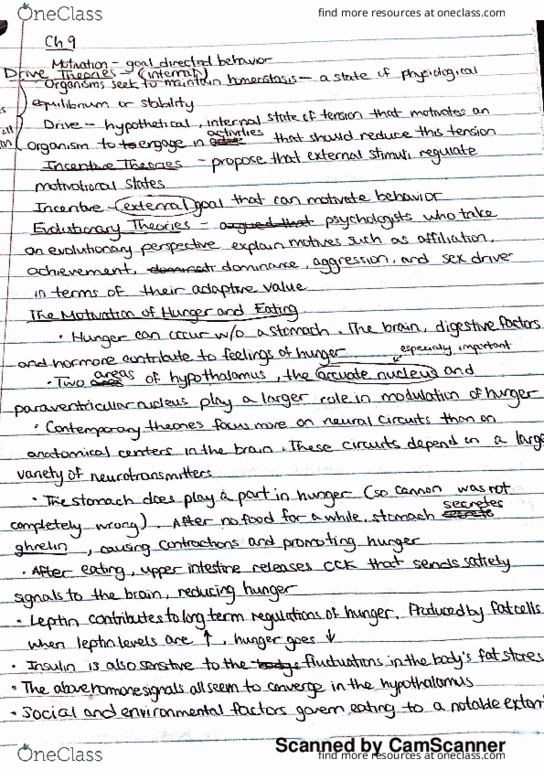 OneClass
find more resources at oneclass.com
Ch 9
Motivation - goal directed behavior
Drive Theories - (internal)
Organisms seek to maintain homeostasis - a state of physiological
equilibrium or stability
Drive - hypothetical, internal state of tension that motivates an
organism to engage in activities that should reduce this tension
Incentive Theories - propose that external stimuli regulate
motivational states
Incentive - external goal that can motivate behavior
Evolutionary Theories - argued that psychologists who take
an evolutionary perspective explain motives such as affiliation,
achievement, dominance, aggression, and sex drive
in terms of their adaptive value
The Motivation of Hunger and Eating
• Hunger can occur w/o a stomach. The brain, digestive factors
and hormone contribute to feelings of hunger
especially important
• Two areas of hypothalamus, the arcuate nucleus and
paraventricular nucleus play a larger role in modulation of hunger
• Contemporary theories focus more on neural circuits than on
anatomical centers in the brain. These circuits depend on a large
variety of neurotransmitters
• The stomach does play a part in hunger (so cannon was not
completely wrong). After no food for a while, stomach secretes
ghrelin, causing contractions and promoting hunger
• After eating, upper intestine releases CCK that sends satiety
signals to the brain, reducing hunger
• Leptin contributes to long term regulations of hunger. Produced by fat cells
when leptin levels are ↑, hunger goes ↓
• Insulin is also sensitive to the fluctuations in the body's fat stores
• The above hormone signals all seem to converge in the hypothalamus
• Social and environmental factors govern eating to a notable exten
Scanned by CamScanner
OneClass
find more resources at oneclass.com